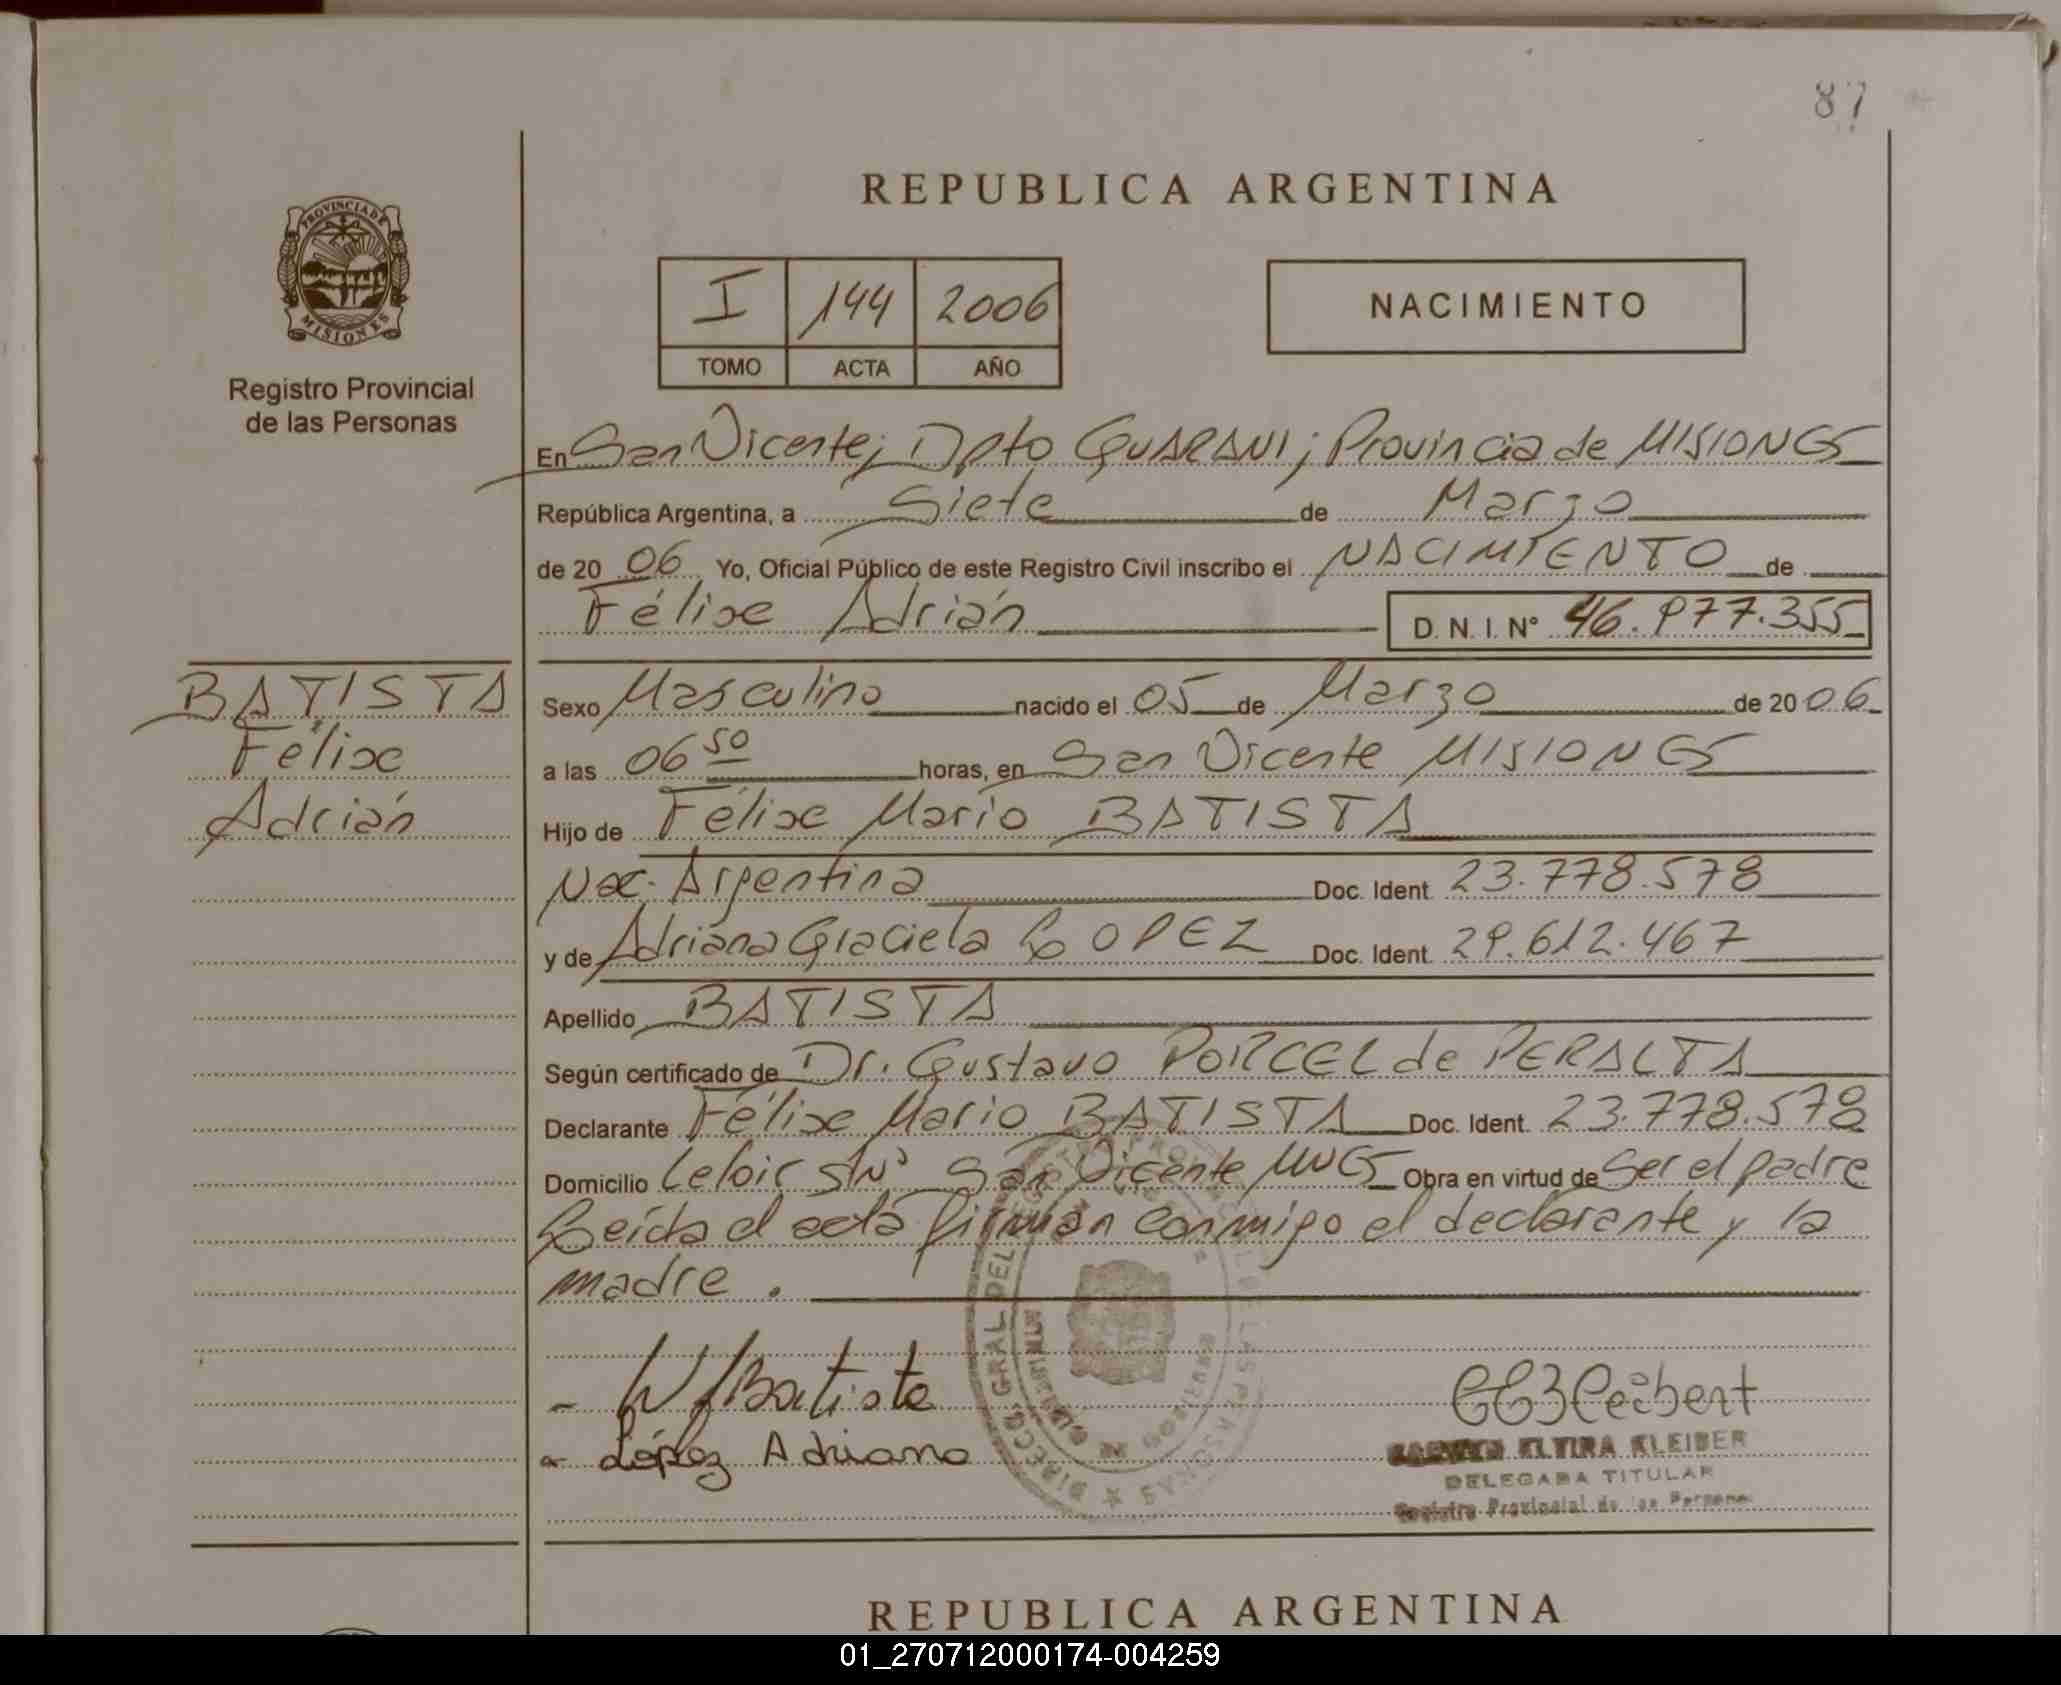 87
REPUBLICA ARGENTINA
PROVINCIA DE
MISIONES
Registro Provincial
de las Personas
I 144 2006
TOMO ACTA AÑO
NACIMIENTO
En San Vicente; Dpto GUARANI; Provincia de MISIONES
República Argentina, a Siete de Marzo
de 20 06 Yo, Oficial Público de este Registro Civil inscribo el NACIMIENTO de
Félix Adrián D. N. I. N° 46.977.355
BATISTA
Félix
Adrián
Sexo Masculino nacido el 05 de Marzo de 20 06
a las 06 50 horas, en San Vicente MISIONES
Hijo de Félix Mario BATISTA
Nac. Argentina Doc. Ident. 23.778.578
y de Adriana Graciela LOPEZ Doc. Ident. 29.612.467
Apellido BATISTA
Según certificado de Dr. Gustavo PORCEL de PERALTA
Declarante Félix Mario BATISTA Doc. Ident. 23.778.578
Domicilio Leloir S/N° San Vicente MNES Obra en virtud de Ser el padre
Leída el acta firman conmigo el declarante y la
madre.
Batista
López Adriana
ELVIRA KLEIBER
DELEGADA TITULAR
Registro Provincial de las Personas
REPUBLICA ARGENTINA
01_270712000174-004259